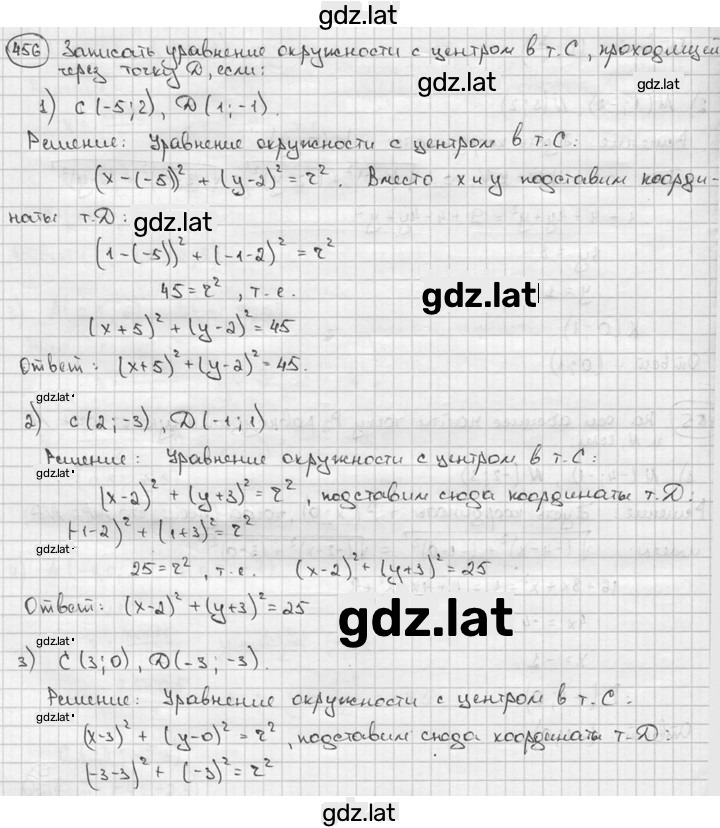 gdz.lat
456 Записать уравнение окружности с центром в т. С, проходящей
через точку D, если:
gdz.lat
gdz.lat
1) С (-5; 2), D (1; -1).
Решение: Уравнение окружности с центром в т. С:
(x-(-5))² + (y-2)² = r². Вместо x и y подставим коорди-
наты т. D:
gdz.lat
(1-(-5))² + (-1-2)² = r²
45 = r², т.е.
gdz.lat
(x+5)² + (y-2)² = 45
Ответ: (x+5)² + (y-2)² = 45.
gdz.lat
2) С (2; -3), D (-1; 1)
Решение: Уравнение окружности с центром в т. С:
gdz.lat
(x-2)² + (y+3)² = r², подставим сюда координаты т. D:
(-1-2)² + (1+3)² = r²
gdz.lat
25 = r², т.е. (x-2)² + (y+3)² = 25
Ответ: (x-2)² + (y+3)² = 25
gdz.lat
gdz.lat
3) С (3; 0), D (-3; -3).
Решение: Уравнение окружности с центром в т. С.
gdz.lat
(x-3)² + (y-0)² = r², подставим сюда координаты т. D:
(-3-3)² + (-3)² = r²
gdz.lat
gdz.lat